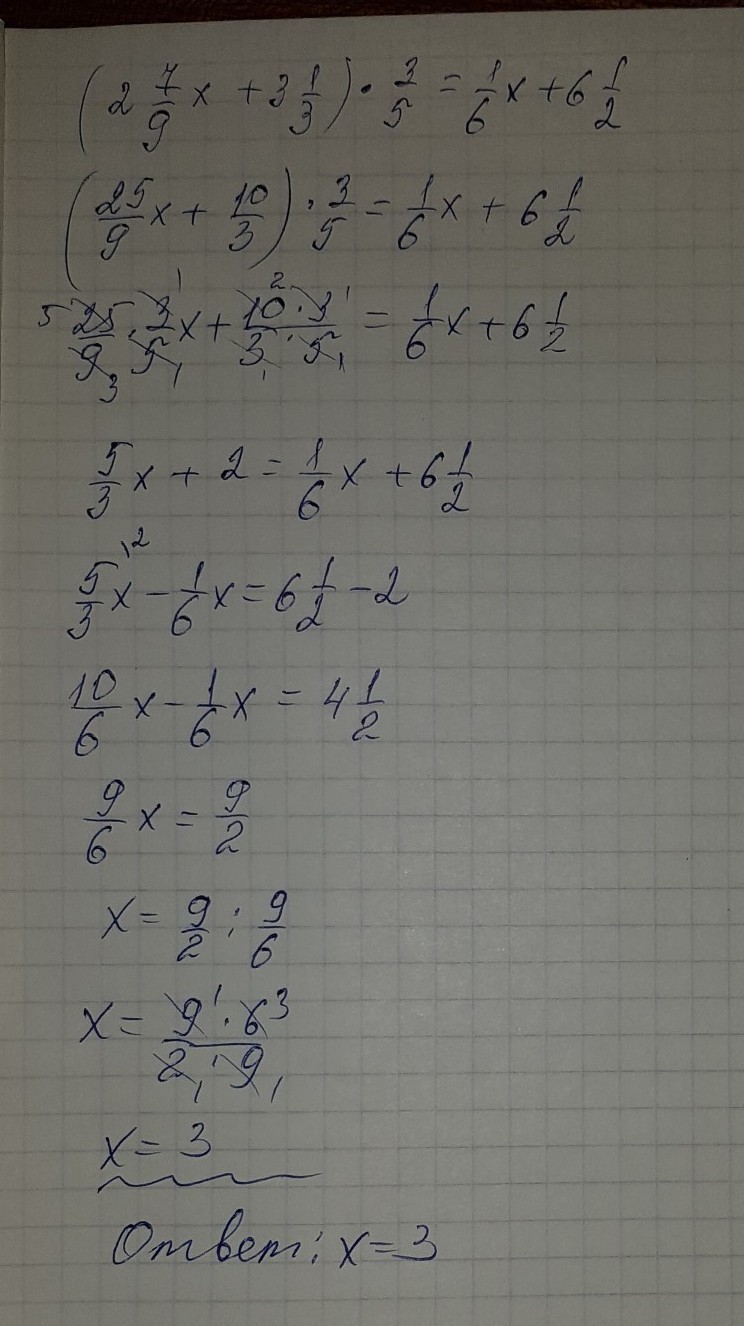 (2 7/9 x + 3 1/3) · 3/5 = 1/6 x + 6 1/2
(25/9 x + 10/3) · 3/5 = 1/6 x + 6 1/2
5 25/9 3 · 3/5 1 1 x + 10 2 · 3 1 / 3 1 · 5 1 = 1/6 x + 6 1/2
5/3 x + 2 = 1/6 x + 6 1/2
5/3 x \2 − 1/6 x = 6 1/2 − 2
10/6 x − 1/6 x = 4 1/2
9/6 x = 9/2
x = 9/2 : 9/6
x = 9 1 · 6 3 / 2 1 · 9 1
x = 3
Ответ: x = 3